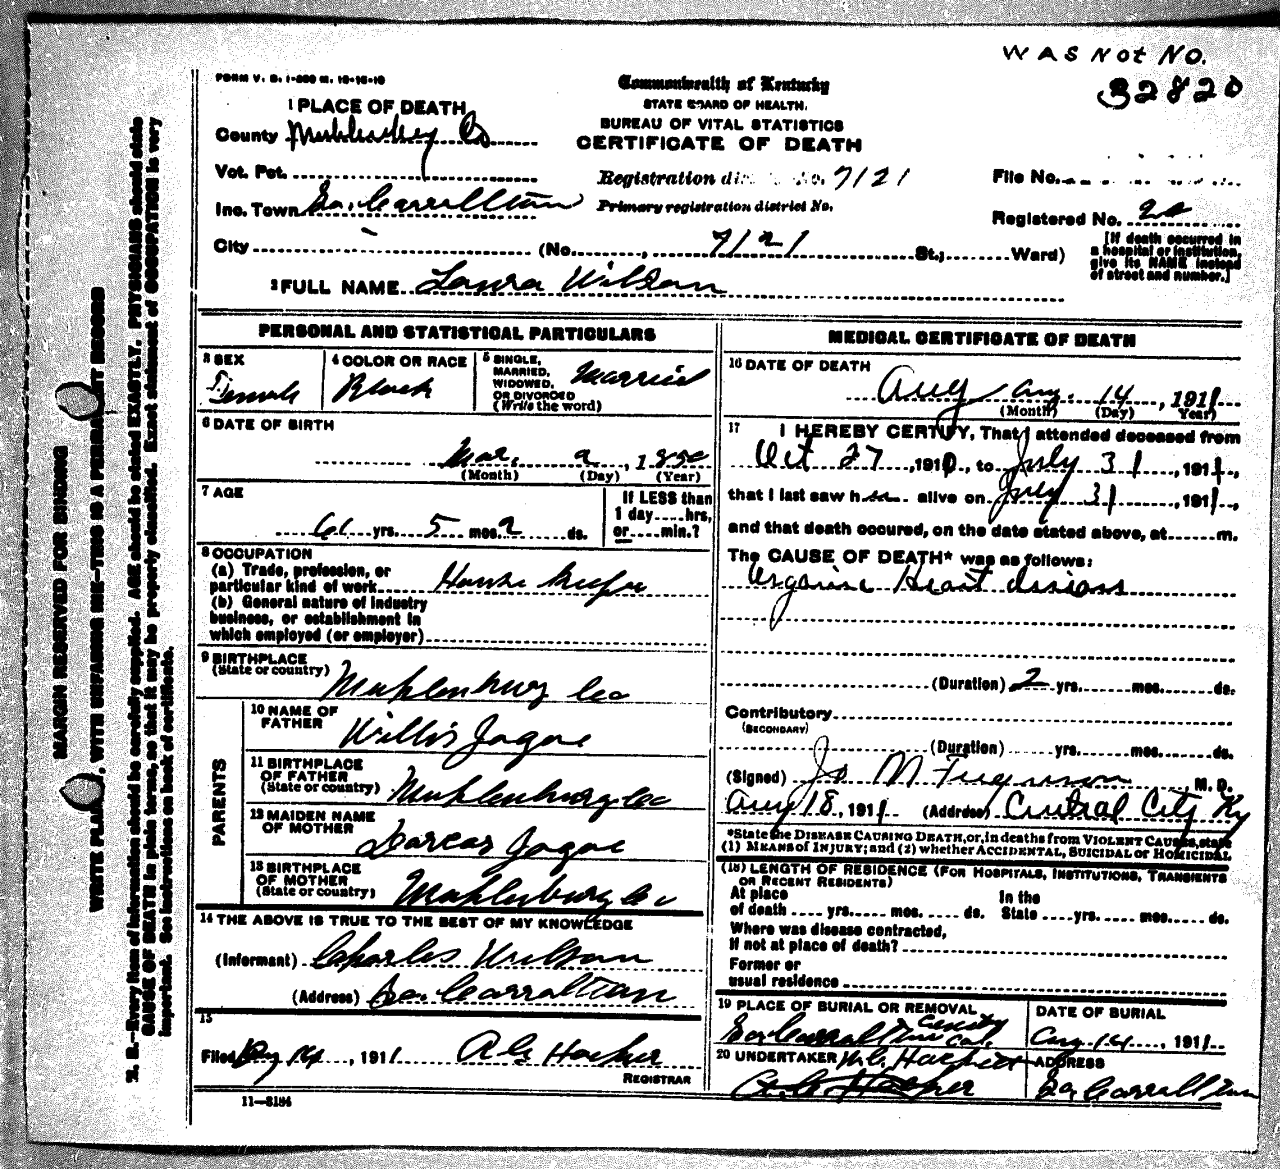 WAS Not NO.
32820
FORM V. S. 1-
Commonwealth of Kentucky
STATE BOARD OF HEALTH.
BUREAU OF VITAL STATISTICS
CERTIFICATE OF DEATH
1 PLACE OF DEATH
County Co
Vot. Pct.
Inc. Town So. Carrollton
City
Registration dis No. 7121
Primary registration district No.
File No.
Registered No.
(No. 7121 St.; Ward)
[If death occurred in
a hospital or institution,
give its NAME instead
of street and number.]
2 FULL NAME Laura Wilson
PERSONAL AND STATISTICAL PARTICULARS
3 SEX
Female
4 COLOR OR RACE
Black
5 SINGLE,
MARRIED,
WIDOWED,
OR DIVORCED
(Write the word)
Married
6 DATE OF BIRTH
Mar. 2, 1850
(Month) (Day) (Year)
7 AGE
61 yrs. 5 mos. 2 ds.
If LESS than
1 day....hrs,
or....min.?
8 OCCUPATION
(a) Trade, profession, or
particular kind of work House
(b) General nature of industry
business, or establishment in
which employed (or employer)
9 BIRTHPLACE
(State or country) Muhlenburg Co
PARENTS
10 NAME OF
FATHER Willis Jagoe
11 BIRTHPLACE
OF FATHER
(State or country) Muhlenburg Co
12 MAIDEN NAME
OF MOTHER Darcas Jagoe
13 BIRTHPLACE
OF MOTHER
(State or country) Muhlenburg Co
14 THE ABOVE IS TRUE TO THE BEST OF MY KNOWLEDGE
(Informant) Charles Wilson
(Address) So. Carrollton
15
Filed Aug 14, 1911
REGISTRAR
11—8184
MEDICAL CERTIFICATE OF DEATH
16 DATE OF DEATH
Aug Aug. 14, 1911
(Month) (Day) Year)
17 I HEREBY CERTIFY, That I attended deceased from
Oct 27, 1910, to July 31, 1911,
that I last saw her alive on July 31, 1911,
and that death occured, on the date stated above, at m.
The CAUSE OF DEATH* was as follows:
Organic Heart
(Duration) 2 yrs. mos. ds.
Contributory
(SECONDARY)
(Duration) yrs. mos. ds.
(Signed) M. D.
Aug 18, 1911 (Address) Central City Ky
*State the DISEASE CAUSING DEATH, or, in deaths from VIOLENT CAUSES, state
(1) MEANS of INJURY; and (2) whether ACCIDENTAL, SUICIDAL or HOMICIDAL.
(18) LENGTH OF RESIDENCE (FOR HOSPITALS, INSTITUTIONS, TRANSIENTS
OR RECENT RESIDENTS)
At place
of death yrs. mos. ds.
In the
State yrs. mos. ds.
Where was disease contracted,
If not at place of death?
Former or
usual residence
19 PLACE OF BURIAL OR REMOVAL
DATE OF BURIAL
Aug. 14, 1911
20 UNDERTAKER
ADDRESS
So Carrollton
MARGIN RESERVED FOR BINDING
WRITE PLAINLY, WITH UNFADING INK—THIS IS A PERMANENT RECORD
N. B.—Every item of information should be carefully supplied. AGE should be stated EXACTLY. PHYSICIANS should state
CAUSE OF DEATH in plain terms, so that it may be properly classified. Exact statement of OCCUPATION is very
important. See instructions on back of certificate.